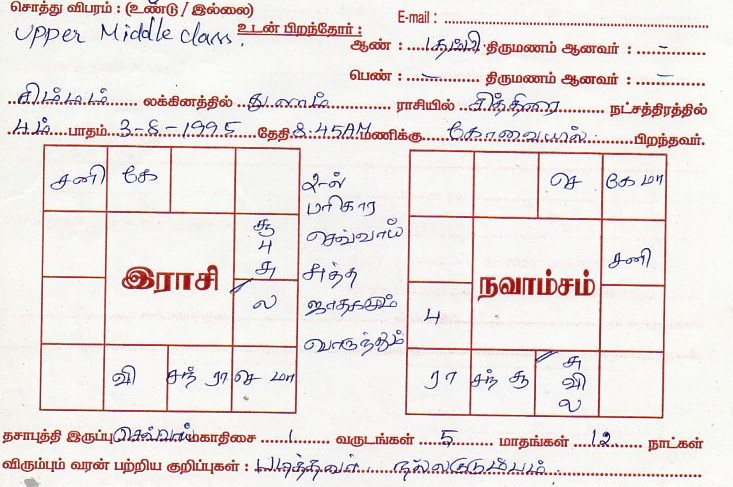 சொத்து விபரம் : (உண்டு / இல்லை)
E-mail :
Upper Middle class.
உடன் பிறந்தோர் :
ஆண் : தம்பி திருமணம் ஆனவர் : -
பெண் : - திருமணம் ஆனவர் : -
சிம்மம் லக்கினத்தில் துலாம் ராசியில் சித்திரை நட்சத்திரத்தில்
4ம் பாதம் 3-8-1995 தேதி 8:45AM மணிக்கு கோவையில் பிறந்தவர்.
சனி கே
சூ
4
சு
ல
இராசி
வி சந் ரா செ மா
2-ல்
பரிகார
செவ்வாய்
சுத்த
ஜாதகமும்
பொருந்தும்
செ கே மா
சனி
நவாம்சம்
4
ரா சந் சூ சு
வி
ல
தசாபுத்தி இருப்பு செவ்வாய் மகாதிசை 1 வருடங்கள் 5 மாதங்கள் 12 நாட்கள்
விரும்பும் வரன் பற்றிய குறிப்புகள் : படித்தவர் நல்லகுடும்பம்.